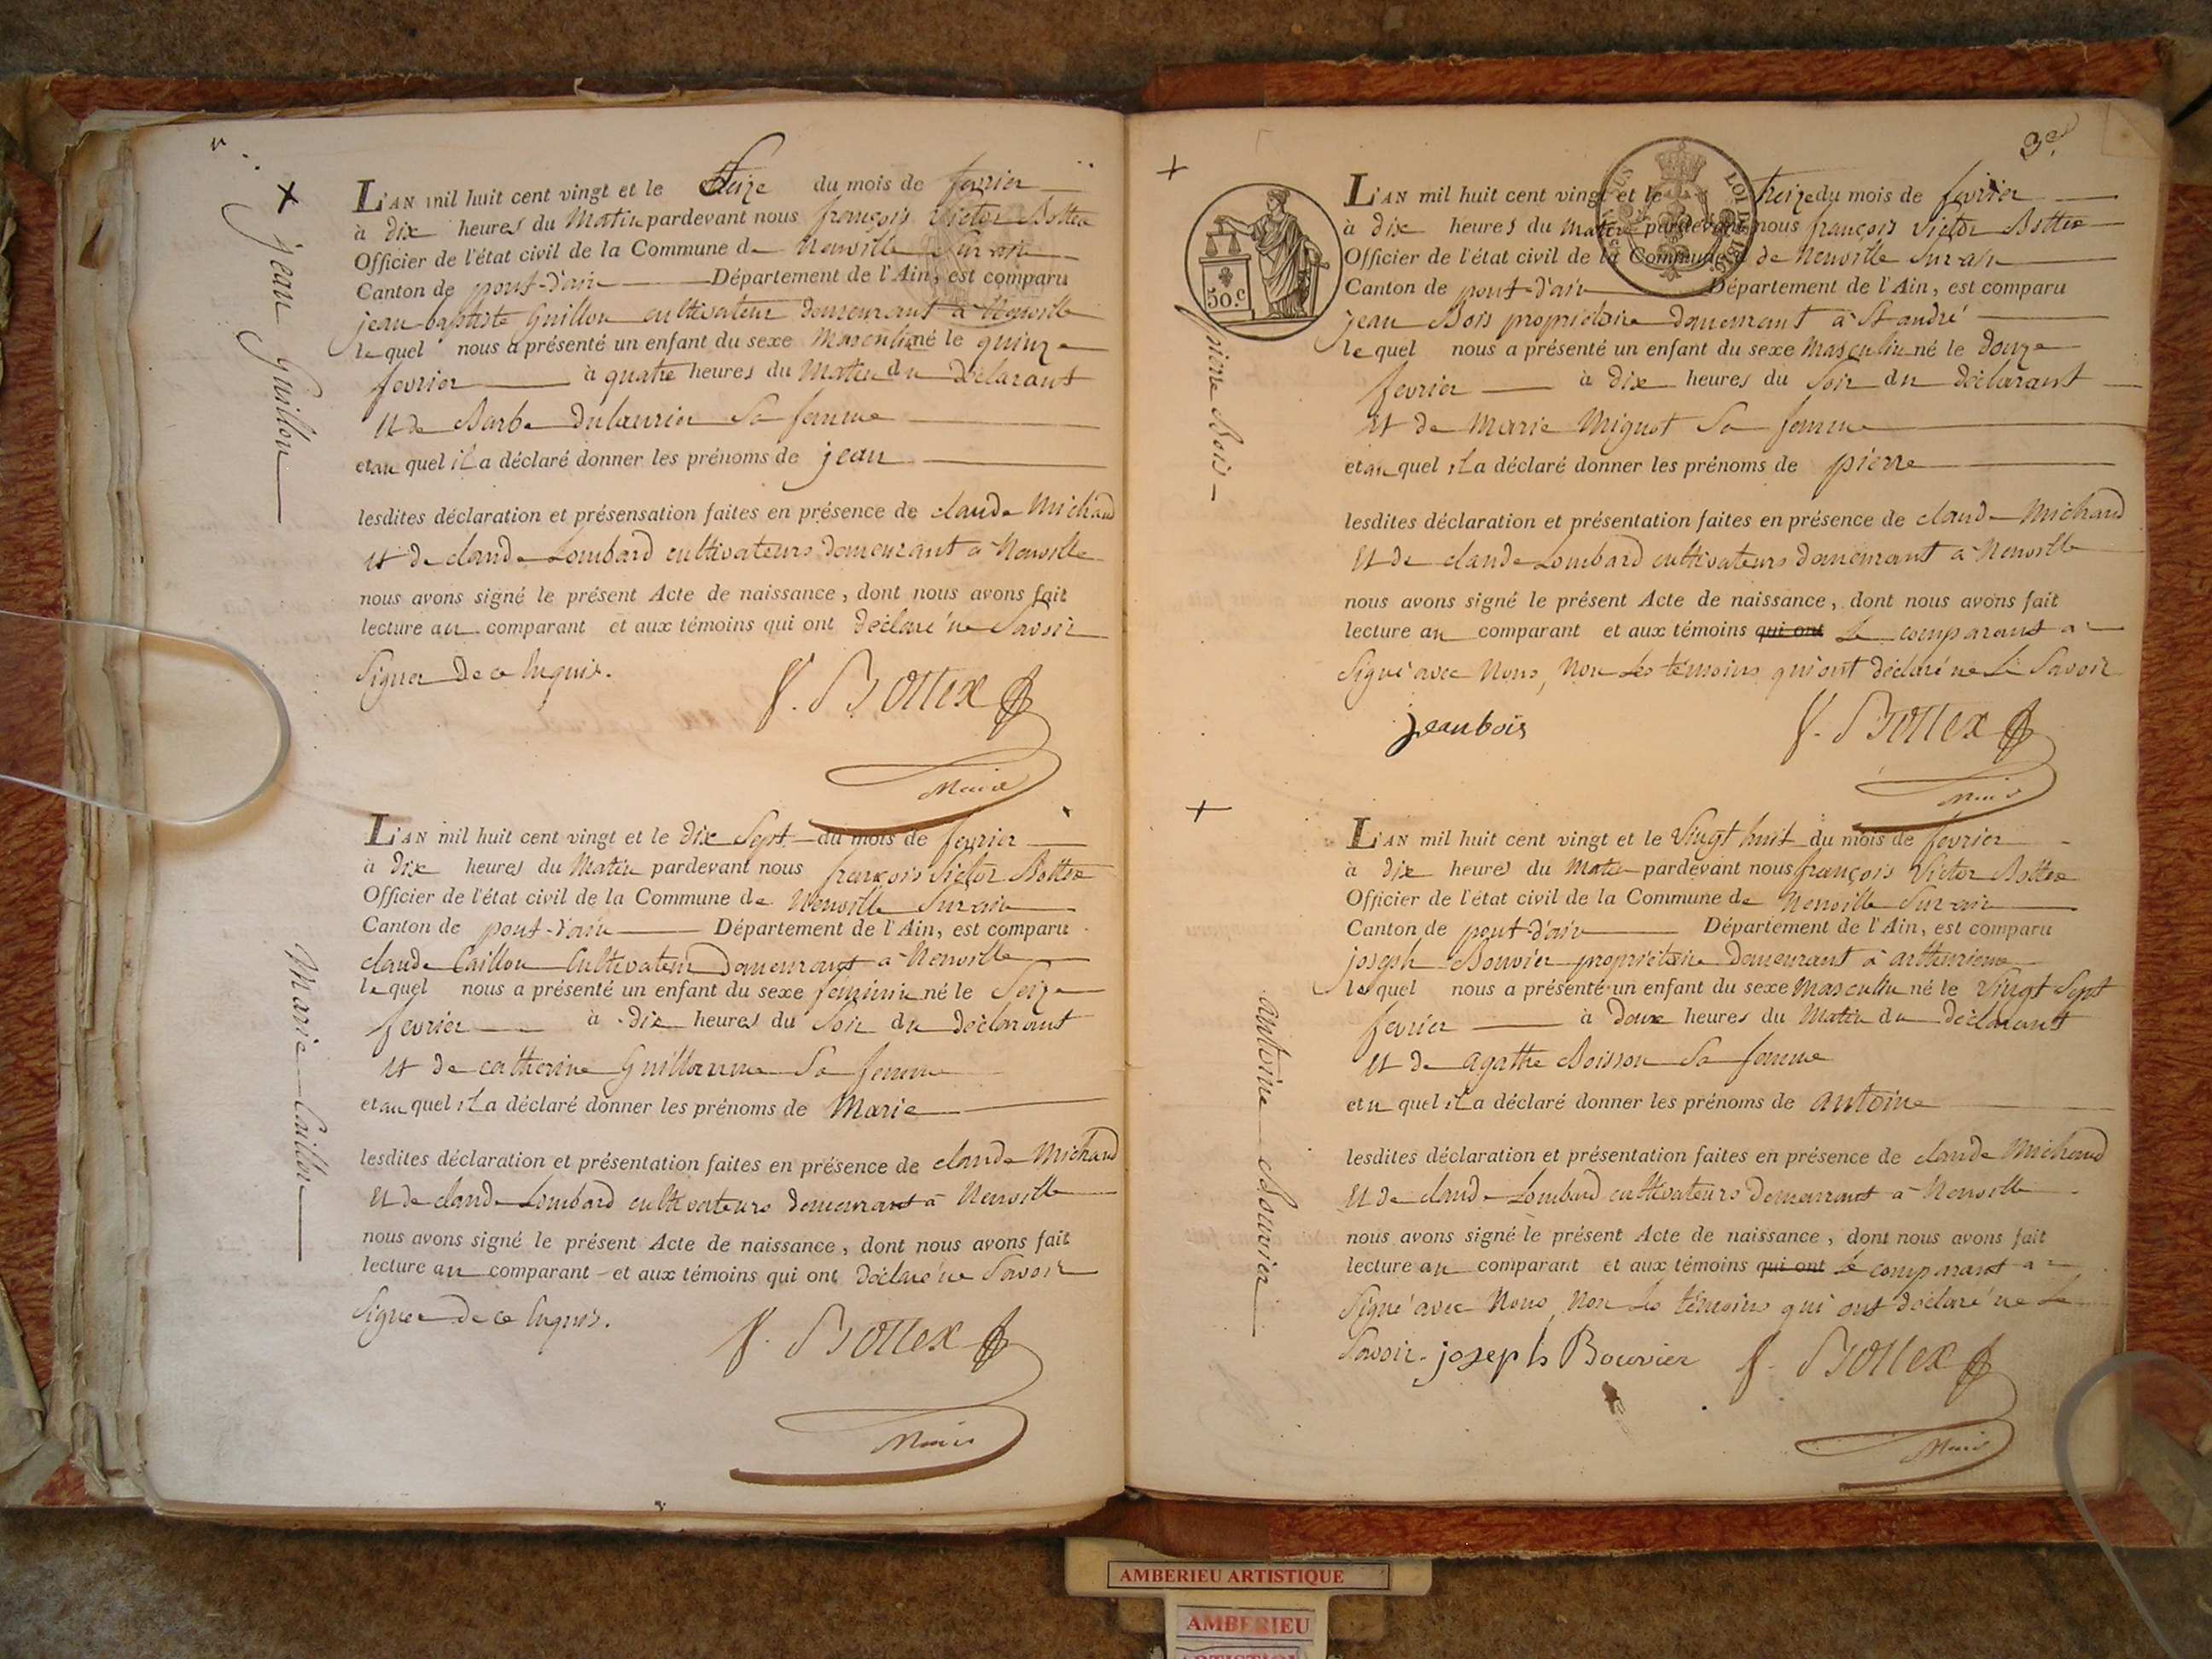 jean Guillon
L'AN mil huit cent vingt et le Seize du mois de fevrier
à dix heures du Matin pardevant nous françois Victor Bottex
Officier de l'état civil de la Commune de Neuville Sur ain
Canton de pont-d'ain Département de l'Ain, est comparu
jean-baptiste Guillon cultivateur demeurant à Neuville
lequel nous a présenté un enfant du sexe Masculin né le quinze
fevrier à quatre heures du Matin du déclarant
et de Barbe dulaurier Sa femme
et au quel il a déclaré donner les prénoms de jean
lesdites déclaration et présensation faites en présence de claude Michaud
et de claude Lombard cultivateurs demeurant a Neuville
nous avons signé le présent Acte de naissance, dont nous avons fait
lecture au comparant et aux témoins qui ont déclaré ne Savoir
Signer de ce Enquis.
V. Bottex
Maire
Marie Caillon
L'AN mil huit cent vingt et le dix Sept du mois de fevrier
à dix heures du Matin pardevant nous françois Victor Bottex
Officier de l'état civil de la Commune de Neuville Sur ain
Canton de pont-d'ain Département de l'Ain, est comparu
claude Caillon Cultivateur demeurant a Neuville
lequel nous a présenté un enfant du sexe feminin né le Seize
fevrier à dix heures du Soir du déclarant
et de catherine Guillaume Sa femme
et au quel il a déclaré donner les prénoms de Marie
lesdites déclaration et présentation faites en présence de claude Michaud
et de claude Lombard cultivateurs demeurant à Neuville
nous avons signé le présent Acte de naissance, dont nous avons fait
lecture au comparant et aux témoins qui ont déclaré ne Savoir
Signer de ce Enquis.
V. Bottex
Maire
3e
50.c
pierre Bois
L'AN mil huit cent vingt et le treize du mois de fevrier
à dix heures du matin pardevant nous françois Victor Bottex
Officier de l'état civil de la Commune de Neuville Sur-ain
Canton de pont-d'ain Département de l'Ain, est comparu
jean Bois propriétaire demeurant à St andré
lequel nous a présenté un enfant du sexe Masculin né le douze
fevrier à dix heures du Soir du déclarant
et de Marie Mignot Sa femme
et au quel il a déclaré donner les prénoms de pierre
lesdites déclaration et présentation faites en présence de claude Michaud
et de claude Lombard cultivateurs demeurant a Neuville
nous avons signé le présent Acte de naissance, dont nous avons fait
lecture au comparant et aux témoins qui ont Le comparant a
Signé avec Nous, Non Les témoins qui ont déclaré ne Le Savoir
jean bois
V. Bottex
Maire
antoine Bouvier
L'AN mil huit cent vingt et le Vingt huit du mois de fevrier
à dix heures du Matin pardevant nous françois Victor Bottex
Officier de l'état civil de la Commune de Neuville Sur-ain
Canton de pont-d'ain Département de l'Ain, est comparu
joseph Bouvier propriétaire demeurant à
lequel nous a présenté un enfant du sexe Masculin né le Vingt Sept
fevrier à deux heures du Matin du déclarant
et de agathe Boisson Sa femme
et u quel il a déclaré donner les prénoms de antoine
lesdites déclaration et présentation faites en présence de claude Michaud
et de claude Lombard cultivateurs demeurant a Neuville
nous avons signé le présent Acte de naissance, dont nous avons fait
lecture au comparant et aux témoins qui ont Le comparant a
Signé avec Nous, Non Les témoins qui ont déclaré ne Le
Savoir. joseph Bouvier V. Bottex
Maire
AMBERIEU ARTISTIQUE
AMBERIEU
ARTISTIQUE